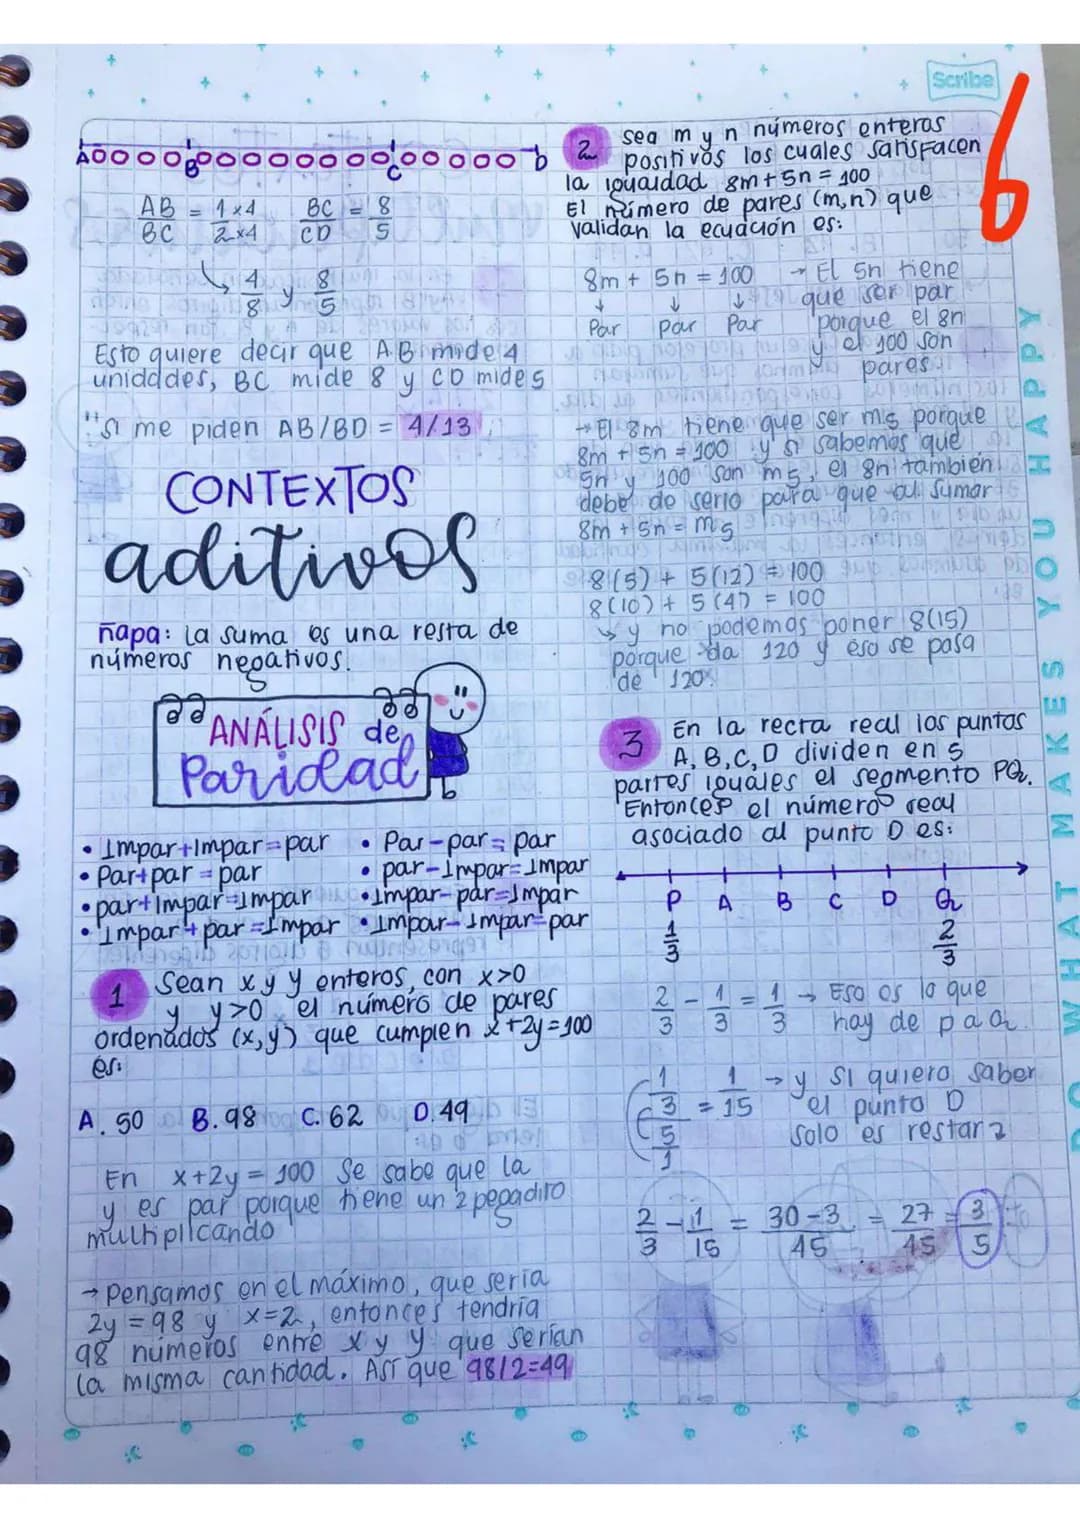 Scribe
6
A B C D
AB/BC = 1x4/2x4 BC/CD = 8/5
↳ 4/8 y 8/5
Esto quiere decir que AB mide 4
unidades, BC mide 8 y CD mide 5
"si me piden AB/BD = 4/13
CONTEXTOS
aditivos
ñapa: la suma es una resta de
números negativos.
ANÁLISIS de
Paridad
• Impar+Impar=par
• Par+par=par
• par+impar=Impar
• Impar+par=Impar
• Par-par=par
• par-Impar=Impar
• Impar-par=Impar
• Impar-Impar=par
1 Sean x y y enteros, con x>0
y y>0 el número de pares
ordenados (x,y) que cumplen x+2y=100
es:
A. 50 B. 98 C. 62 D. 49
En x+2y=100 Se sabe que la
y es par porque tiene un 2 pegadito
multiplicando
→ Pensamos en el máximo, que sería
2y=98 y x=2, entonces tendría
98 números entre x y y que serían
la misma cantidad. Así que 98/2=49
2 sea m y n números enteros
positivos los cuales satisfacen
la igualdad 8m+5n=100
El número de pares (m,n) que
validan la ecuación es:
8m + 5n = 100
↓ ↓ ↓
Par par Par
→ El 5n tiene
que ser par
porque el 8n
y el 100 son
pares.
→ El 8m tiene que ser m5 porque
8m + 5n = 100 y si sabemos que
5n y 100 son m5, el 8n también
debe de serlo para que al sumar
8m + 5n = m5
8(5) + 5(12) = 100
8(10) + 5(4) = 100
↳ y no podemos poner 8(15)
porque da 120 y eso se pasa
de 120.
3 En la recta real los puntos
A, B, C, D dividen en 5
partes iguales el segmento PQ.
Entonces el número real
asociado al punto D es:
P A B C D Q
1/3 2/3
2/3 - 1/3 = 1/3 → Eso es lo que
hay de p a Q.
(1/3)/(5/1) = 1/15 → y si quiero saber
el punto D
solo es restar
2/3 - 1/15 = 30-3/45 = 27/45 = 3/5
DO WHAT MAKES YOU HAPPY